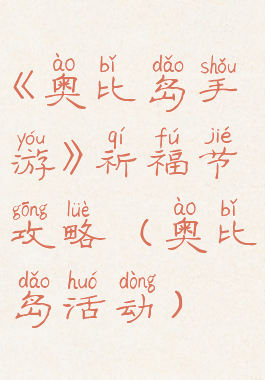 ào bǐ dǎo shǒu
《奥比岛手
yóu qí fú jié
游》祈福节
gōng lüè ào bǐ
攻略（奥比
dǎo huó dòng
岛活动）